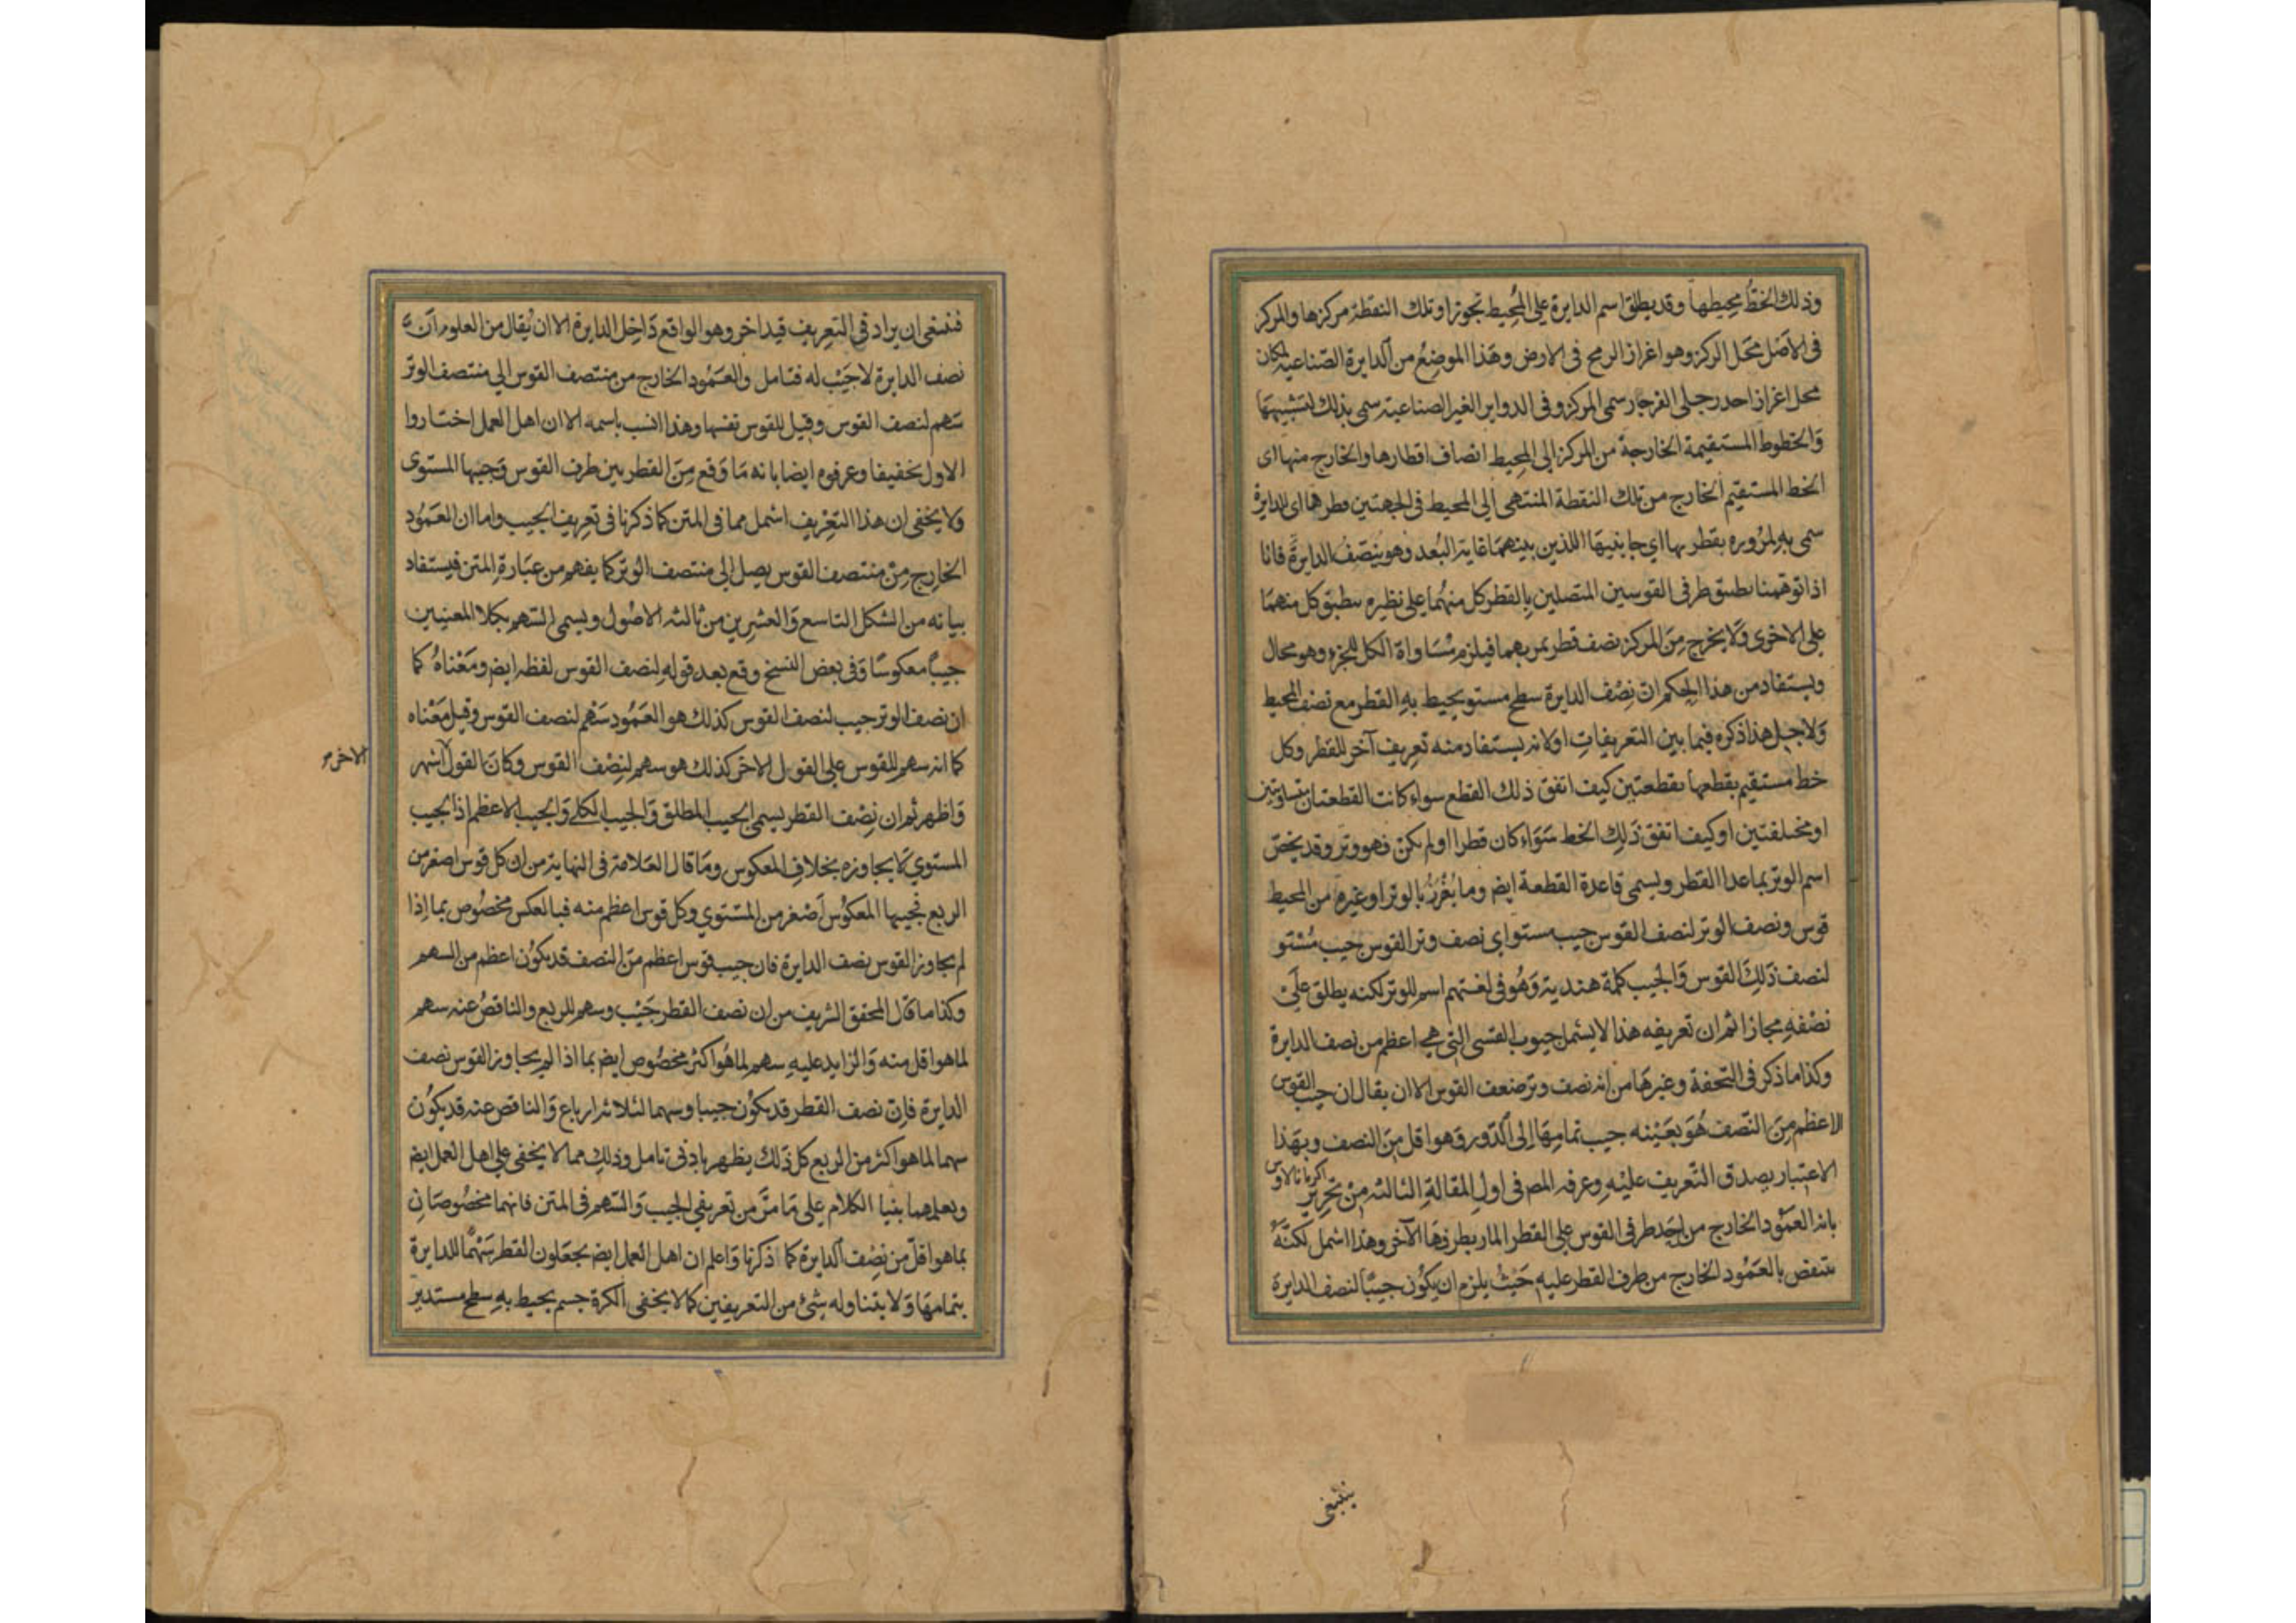 وذلك الخط محيطها وقد يطلق اسم الدايرة على المحيط تجوزا وتلك النقطة مركزها والمركز
فى الاصل محل الركز وهو اغراز الرمح فى الارض وهذا الموضع من الدايرة الصناعية لمكان
محل اغراز احد رجلى الفرجار سمى المركز وفى الدواير الغير الصناعية سمى بذلك لتشبيهها
والخطوط المستقيمة الخارجة من المركز الى المحيط انصاف اقطارها والخارج منها اى
الخط المستقيم الخارج من تلك النقطة المنتهى الى المحيط فى الجهتين قطرها اى الدايرة
سمى به لمروره بقطريها اى جانبيها اللذين بينهما غاية البعد وهو ينصف الدايرة فانا
اذا توهمنا تطبيق طرفى القوسين المتصلين بالقطر كل منهما على نظيره ينطبق كل منهما
على الاخرى ولا يخرج من المركز نصف قطر يمر بهما فيلزم مساواة الكل للجزء وهو محال
ويستفاد من هذا الحكم ان نصف الدايرة سطح مستو يحيط به القطر مع نصف المحيط
ولاجل هذا ذكره فيما بين التعريفات اولانه يستفاد منه تعريف آخر للقطر وكل
خط مستقيم يقطعها بقطعتين كيف اتفق ذلك القطع سواء كانت القطعتان متساويتين
او مختلفتين او كيف اتفق ذلك الخط سواء كان قطرا او لم يكن فهو وتر وقد يخص
اسم الوتر بما عدا القطر ويسمى قاعدة القطعة ايض وما يفرز بالوتر او غيره من المحيط
قوس ونصف الوتر لنصف القوس جيب مستو اى نصف وتر القوس جيب مستو
لنصف ذلك القوس والجيب كلمة هندية وهو فى لغتهم اسم للوتر لكنه يطلق على
نصفه مجازا ثم ان تعريفه هذا لا يشمل جيوب القسى التى هى اعظم من نصف الدايرة
وكذا ما ذكر فى التحفة وغيرها من انه نصف وتر ضعف القوس الا ان يقال ان جيب القوس
الاعظم من النصف هو بعينه جيب تمامها الى الدور وهو اقل من النصف وبهذا
الاعتبار يصدق التعريف عليه وعرفه المص فى اول المقالة الثالثة من تحرير اكر مانالاوس
بانه العمود الخارج من احد طرفى القوس على القطر المار بطرفها الآخر وهذا اشمل لكنه
ينتقض بالعمود الخارج من طرف القطر عليه حيث يلزم ان يكون جيبا لنصف الدايرة
ينبغى
فينبغى ان يراد فى التعريف قيد اخر وهو الواقع داخل الدايرة الا ان يقال من العلوم ان
نصف الدايرة لا جيب له فتامل والعمود الخارج من منتصف القوس الى منتصف الوتر
سهم لنصف القوس وقيل للقوس نفسها وهذا انسب باسمه الا ان اهل العمل اختاروا
الاول تخفيفا وعرفوه ايضا بانه ما وقع من القطر بين طرف القوس وجيبها المستوى
ولا يخفى ان هذا التعريف اشمل مما فى المتن كما ذكرنا فى تعريف الجيب واما ان العمود
الخارج من منتصف القوس يصل الى منتصف الوتر كما يفهم من عبارة المتن فيستفاد
بيانه من الشكل التاسع والعشرين من ثالثة الاصول ويسمى السهم بكلا المعنيين
جيبا معكوسا وفى بعض النسخ وقع بعد قوله لنصف القوس لفظ ايض ومعناه كما
ان نصف الوتر جيب لنصف القوس كذلك هو العمود سهم لنصف القوس وقيل معناه
كما انه سهم للقوس على القول الاخر كذلك هو سهم لنصف القوس وكان القول اشهر
الاخر
واظهر ثم ان نصف القطر يسمى الجيب المطلق والجيب الكلى والجيب الاعظم اذ الجيب
المستوى لا يجاوزه بخلاف المعكوس وما قال العلامة فى النهاية من ان كل قوس اصغر من
الربع فجيبها المعكوس اصغر من المستوى وكل قوس اعظم منه فبالعكس مخصوص بما اذا
لم يجاوز القوس نصف الدايرة فان جيب قوس اعظم من النصف قد يكون اعظم من السهم
وكذا ما قال المحقق الشريف من ان نصف القطر جيب وسهم للربع والناقص عنه سهم
لما هو اقل منه والزايد عليه سهم لما هو اكثر مخصوص ايض بما اذا لم يجاوز القوس نصف
الدايرة فان نصف القطر قد يكون جيبا وسهما لثلاثة ارباع والناقص عنه قد يكون
سهما لما هو اكثر من الربع كل ذلك يظهر بادنى تامل وذلك مما لا يخفى على اهل العمل ايض
ولعلهما بنيا الكلام على ما مر من تعريفى الجيب والسهم فى المتن فانهما مخصوصان
بما هو اقل من نصف الدايرة كما ذكرنا واعلم ان اهل العمل ايض يجعلون القطر سهما للدايرة
بتمامها ولا يتناوله شئ من التعريفين كما لا يخفى الكرة جسم يحيط به سطح مستدير